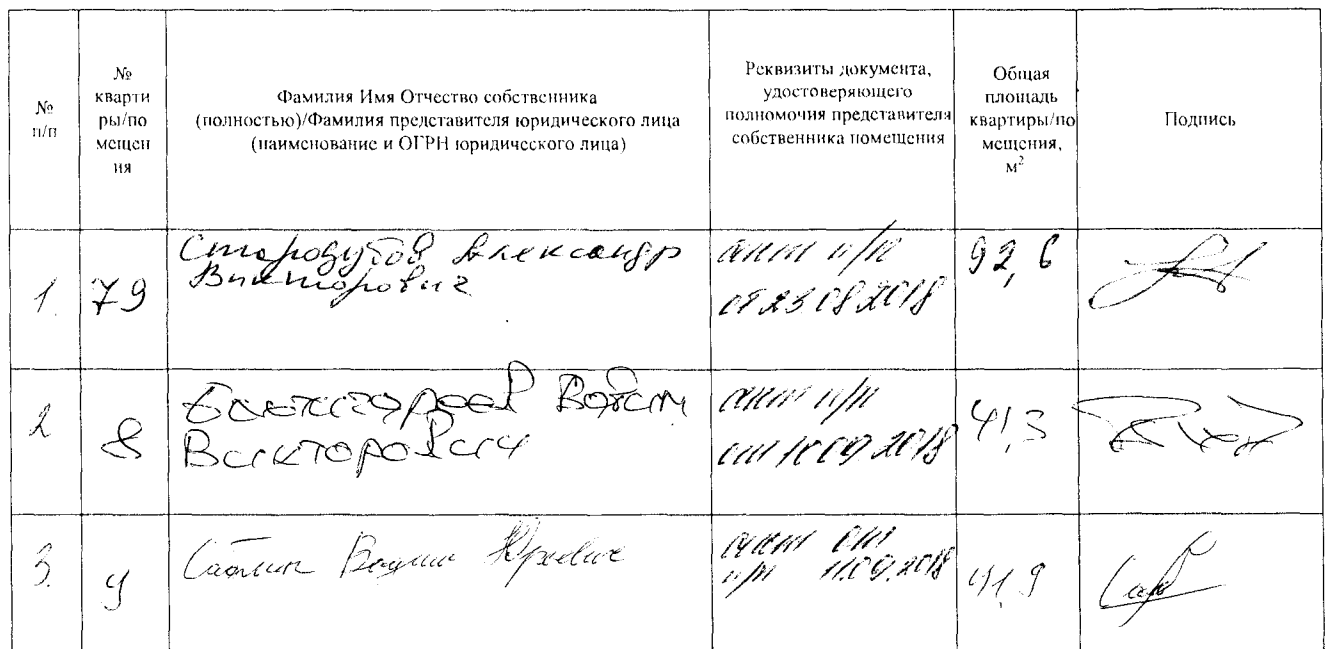 №
п/п
№
кварти
ры/по
мещен
ия
Фамилия Имя Отчество собственника
(полностью)/Фамилия представителя юридического лица
(наименование и ОГРН юридического лица)
Реквизиты документа,
удостоверяющего
полномочия представителя
собственника помещения
Общая
площадь
квартиры/по
мещения,
м²
Подпись
1.
79
Александр
Викторович
акт п/п
от 23.08.2018
92,6
2
8
Викторович
акт п/п
от 10.09.2018
41,3
3.
Вадим Юрьевич
акт от
п/п 11.09.2018
41,9